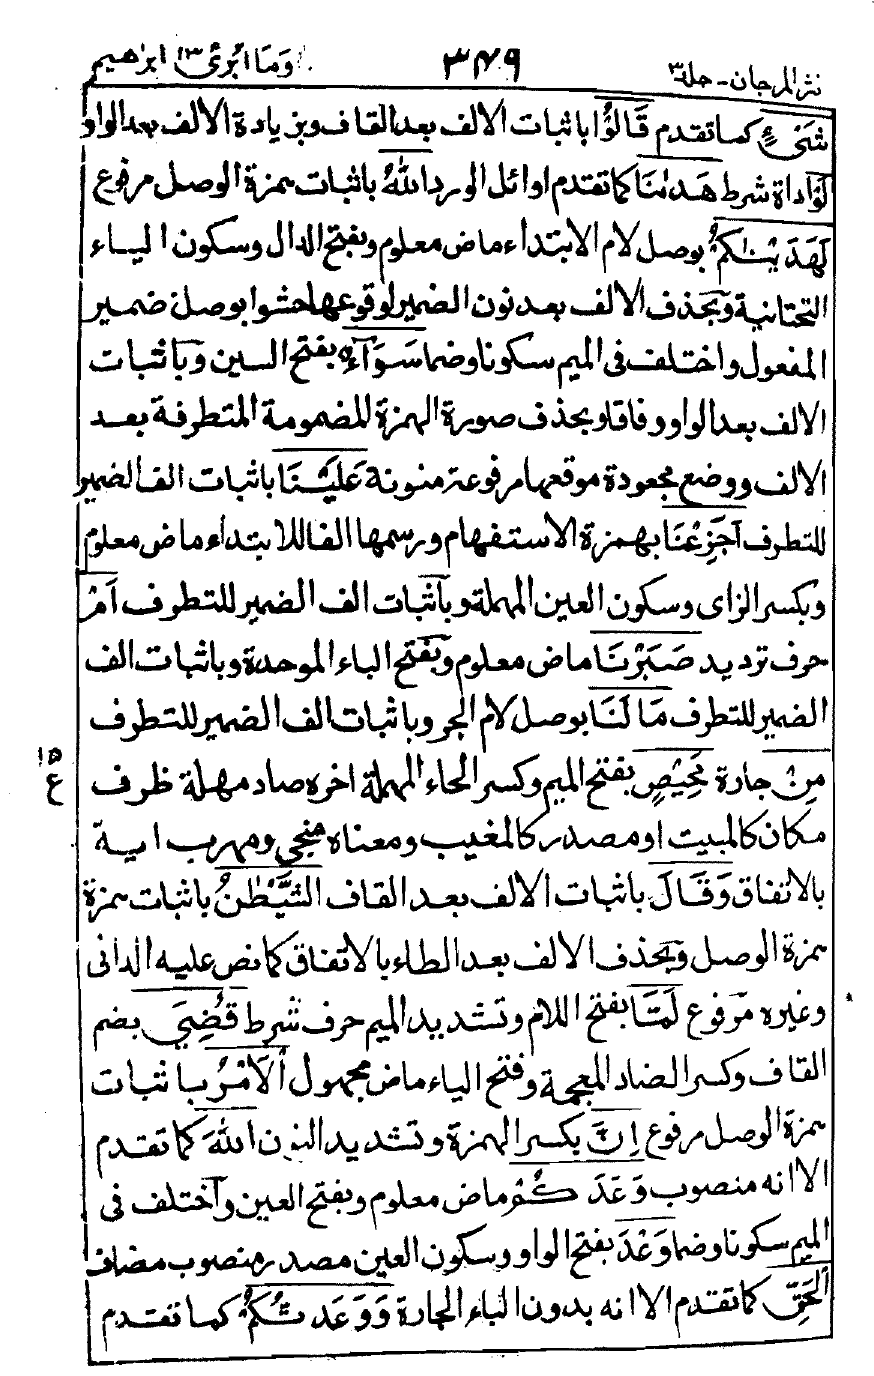 نثر المرجان - جلد ٣ ٣٤٩ وَمَا اُبَرِّئُ ١٣ ابراهيم
شَيْءٍ كما تقدم قَالُوْا باثبات الالف بعد القاف وبزيادة الالف بعد الواو
لَوْ اداة شرط هَدٰىنَا كما تقدم اوائل الورد اللّٰهُ باثبات همزة الوصل مرفوع
لَهَدَيْنٰكُمْ بوصل لام الابتداء ماض معلوم وبفتح الدال وسكون الياء
التحتانية وبحذف الالف بعد نون الضمير لوقوعها حشوا بوصل ضمير
المفعول واختلف فى الميم سكونا وضما سَوَآءٌ بفتح السين وباثبات
الالف بعد الواو وفاقا وبحذف صورة الهمزة المضمومة المتطرفة بعد
الالف ووضع مجعودة موقعها مرفوعة منونة عَلَيْنَا باثبات الف الضمير
للتطرف اَجَزِعْنَا بهمزة الاستفهام ورسمها الفا للابتداء ماض معلوم
وبكسر الزاى وسكون العين المهملة وباثبات الف الضمير للتطرف اَمْ
حرف ترديد صَبَرْنَا ماض معلوم وبفتح الباء الموحدة وباثبات الف
الضمير للتطرف مَا لَنَا بوصل لام الجر وباثبات الف الضمير للتطرف
مِنْ جارة مَحِيْصٍ بفتح الميم وكسر الحاء المهملة اخره صاد مهملة ظرف
١٥
ع
مكان كالمبيت او مصدر كالمغيب ومعناه منجى ومهرب اية
بالاتفاق وَقَالَ باثبات الالف بعد القاف الشَّيْطٰنُ باثبات همزة
همزة الوصل وبحذف الالف بعد الطاء بالاتفاق كما نص عليه الدانى
وغيره مرفوع لَمَّا بفتح اللام وتشديد الميم حرف شرط قُضِيَ بضم
القاف وكسر الضاد المعجمة وفتح الياء ماض مجهول الْاَمْرُ باثبات
همزة الوصل مرفوع اِنَّ بكسر الهمزة وتشديد النون اللّٰهَ كما تقدم
الا انه منصوب وَعَدَكُمْ ماض معلوم وبفتح العين واختلف فى
الميم سكونا وضما وَعْدَ بفتح الواو وسكون العين مصدر منصوب مضاف
الْحَقِّ كما تقدم الا انه بدون الباء الجارة وَوَعَدْتُّكُمْ كما تقدم